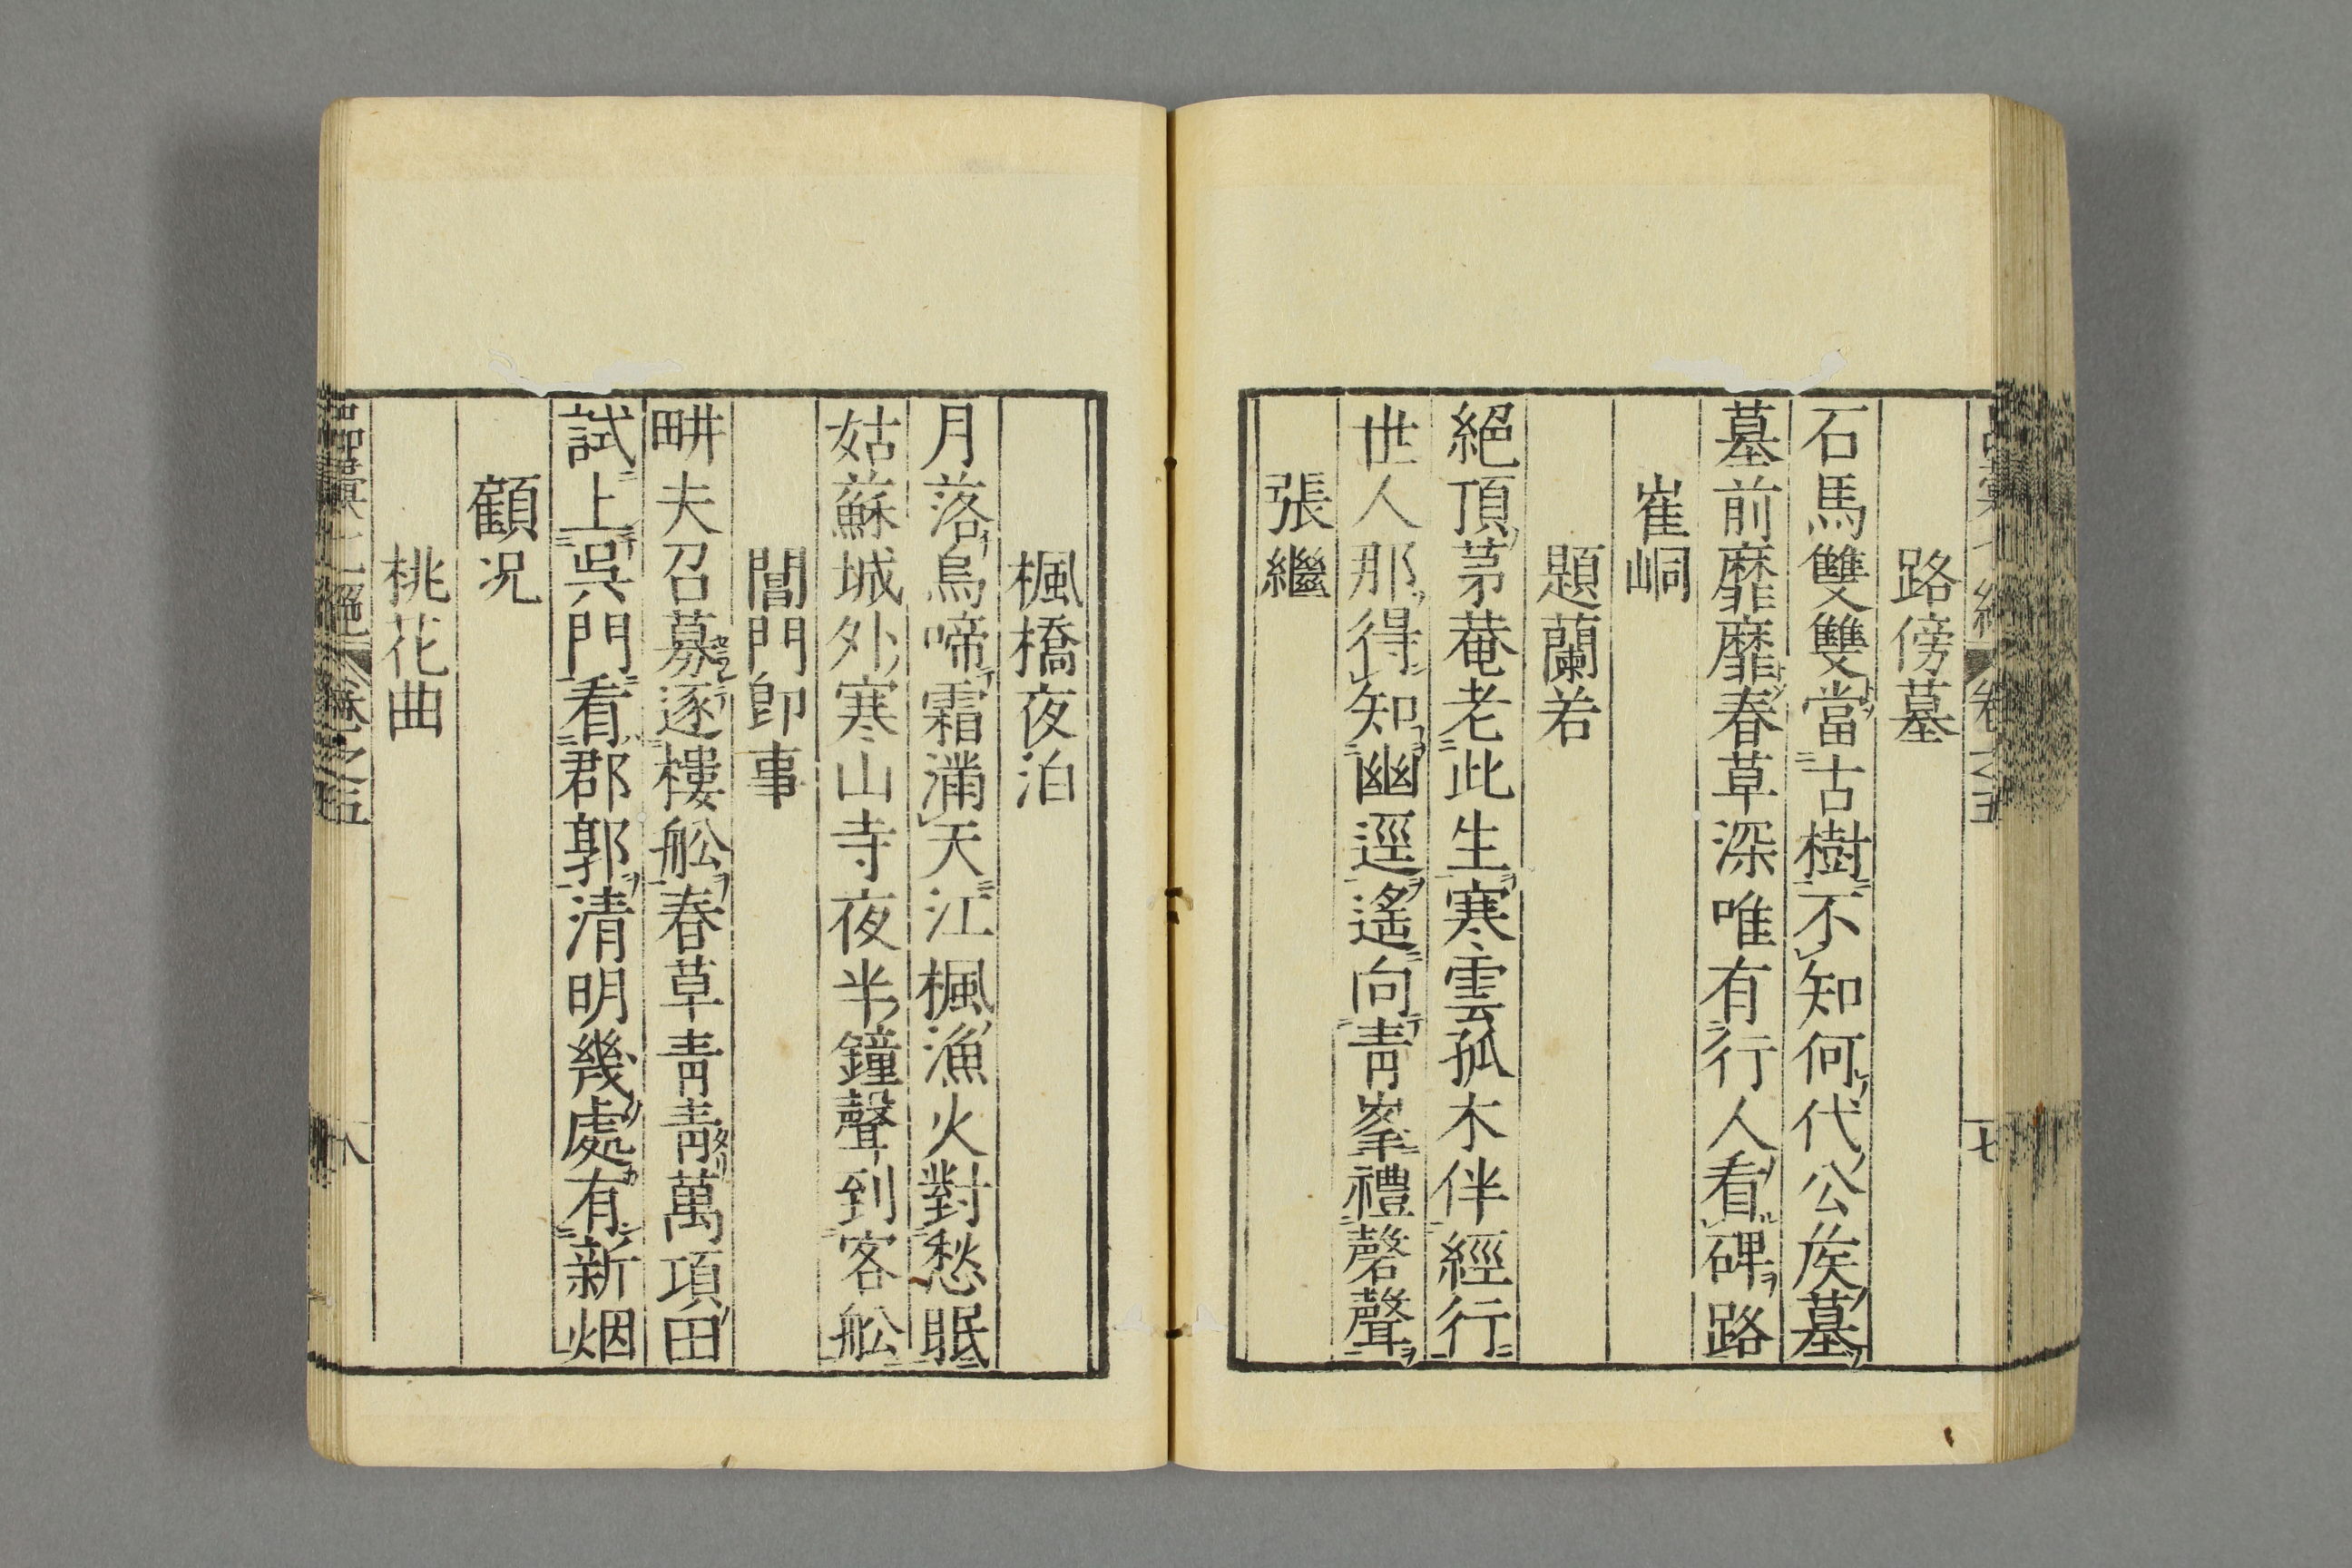 路傍墓
石馬雙雙當古樹不知何代公矦墓
墓前靡靡春草深唯有行人看碑路
崔峒
題蘭若
絕頂茅菴老此生寒雲孤木伴經行
世人那得知幽逕遙向青峯禮磬聲
張繼
楓橋夜泊
月落烏啼霜滿天江楓漁火對愁眠
姑蘇城外寒山寺夜半鐘聲到客舩
閶門卽事
畊夫召募逐樓舩春草青青萬項田
試上吳門看郡郭清明幾處有新烟
顧况
桃花曲
卷之五
八